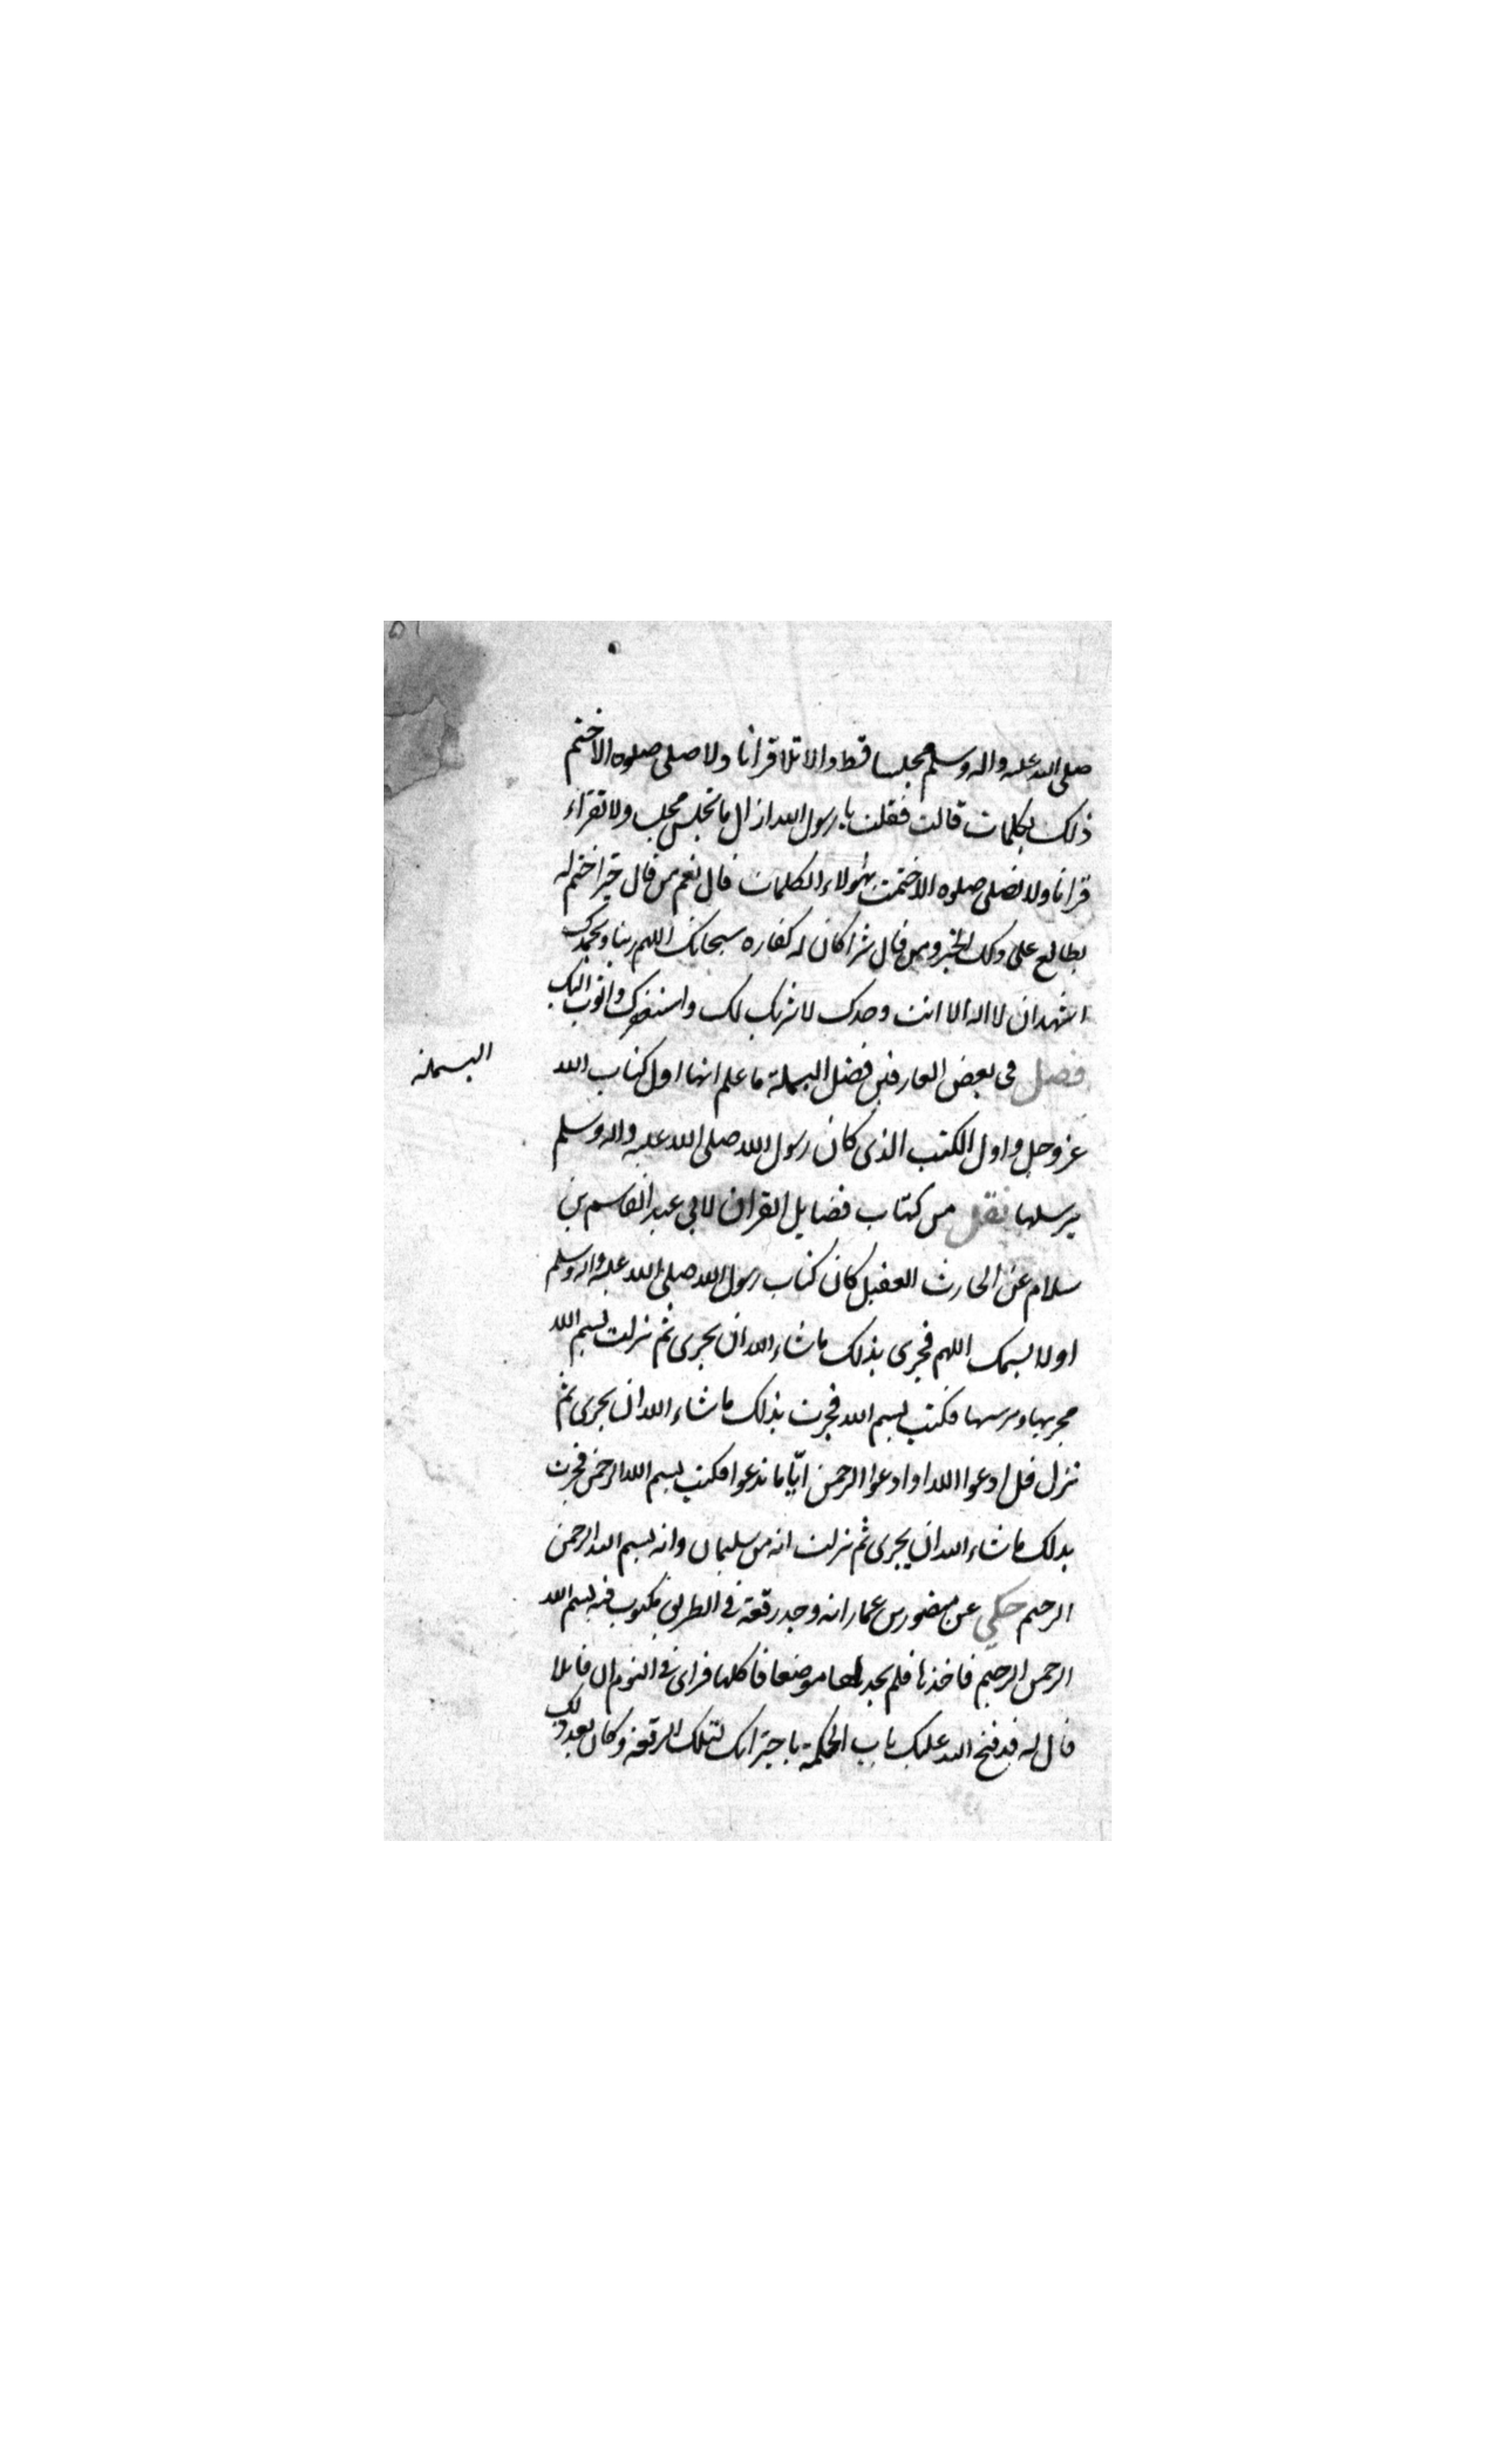 صلى الله عليه واله وسلم مجلسا قط والا تلا قرانا ولا صلى صلوه الا ختم
ذلك بكلمات قالت فقلت يا رسول الله اراك ما تجلس مجلسا ولا تقراء
قرانا ولا تصلى صلوه الا ختمت بهولاء الكلمات قال نعم من قال خيرا ختم له
بطابع على ذلك الخير ومن قال شرا كان له كفاره سبحانك اللهم ربنا وبحمدك
اشهد ان لا اله الا انت وحدك لا شريك لك واستغفرك واتوب اليك
فصل فى بعض العارفين فضل البسملة ما علم انها اول كتاب الله
البسملة
عز وجل واول الكتب الذى كان رسول الله صلى الله عليه واله وسلم
يرسلها نقل من كتاب فضايل القران لابى عبد القاسم بن
سلام عن الحارث العقيل كان كتاب رسول الله صلى الله عليه واله وسلم
اولا بسمك اللهم فجرى بذلك ما شاء الله ان يجرى ثم نزلت بسم الله
مجريها ومرسها فكتب بسم الله فجرت بذلك ما شاء الله ان يجرى ثم
نزل قل ادعوا الله او ادعوا الرحمن ايّا ما تدعوا فكتب بسم الله الرحمن فجرت
بذلك ما شاء الله ان يجرى ثم نزلت انه من سليمان وانه بسم الله الرحمن
الرحيم حكى عن منصور بن عمار انه وجد رقعة فى الطريق مكتوب فيه بسم الله
الرحمن الرحيم فاخذها فلم يجد لها موضعا فاكلها فراى فى النوم ان قايلا
قال له قد فتح الله عليك باب الحكمة باحترامك لتلك الرقعة وكان بعد ذلك